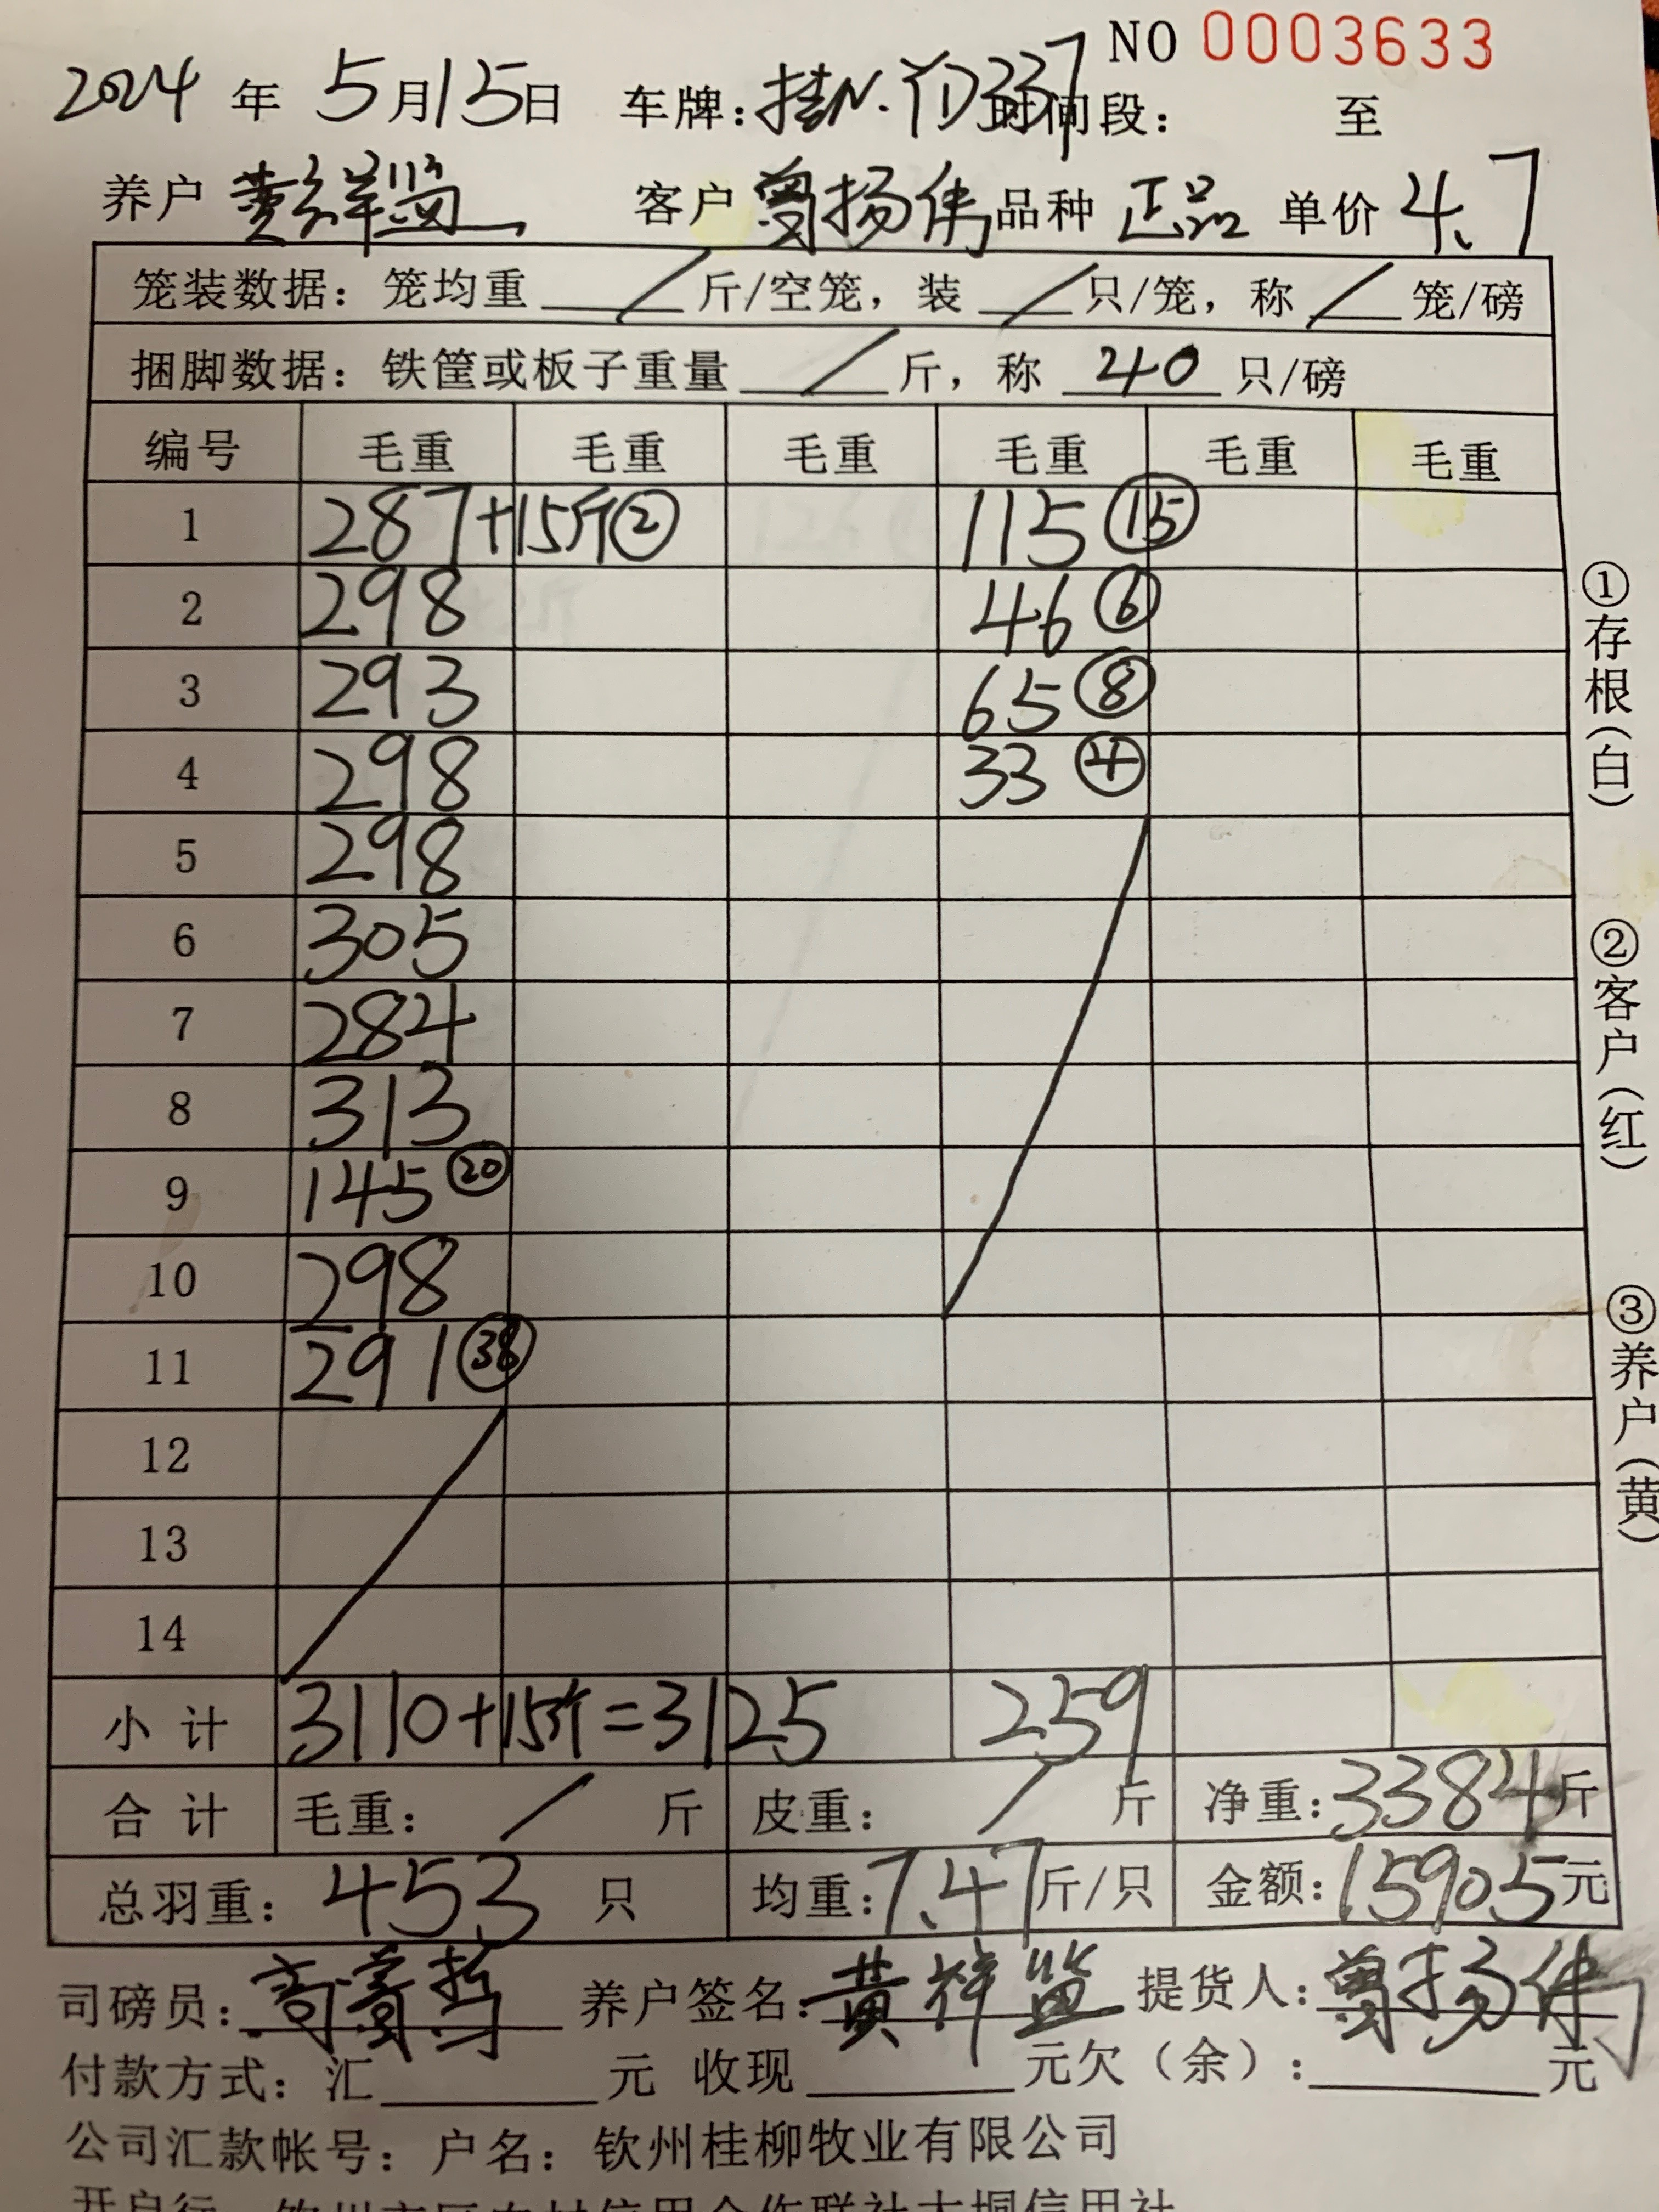 NO 0003633
2024 年 5月15日 车牌：桂N·D337 时间段： 至
养户 黄祥 客户 曾扬伟 品种 正品 单价 4.7
笼装数据：笼均重 / 斤/空笼，装 / 只/笼，称 / 笼/磅
捆脚数据：铁筐或板子重量 / 斤，称 40 只/磅
编号 毛重 毛重 毛重 毛重 毛重 毛重
1 287+15斤② 115⑮
2 298 46⑥
3 293 65⑧
4 298 33④
5 298
6 305
7 284
8 313
9 145⑳
10 298
11 291㊳
12
13
14
小计 3110+15斤=3125 259
合计 毛重： / 斤 皮重： / 斤 净重：3384斤
总羽重：453 只 均重：7.47斤/只 金额：15905元
司磅员： 养户签名：黄祥 提货人：曾扬伟
付款方式：汇 元 收现 元欠（余）： 元
公司汇款帐号：户名：钦州桂柳牧业有限公司
①存根（白）
②客户（红）
③养户（黄）